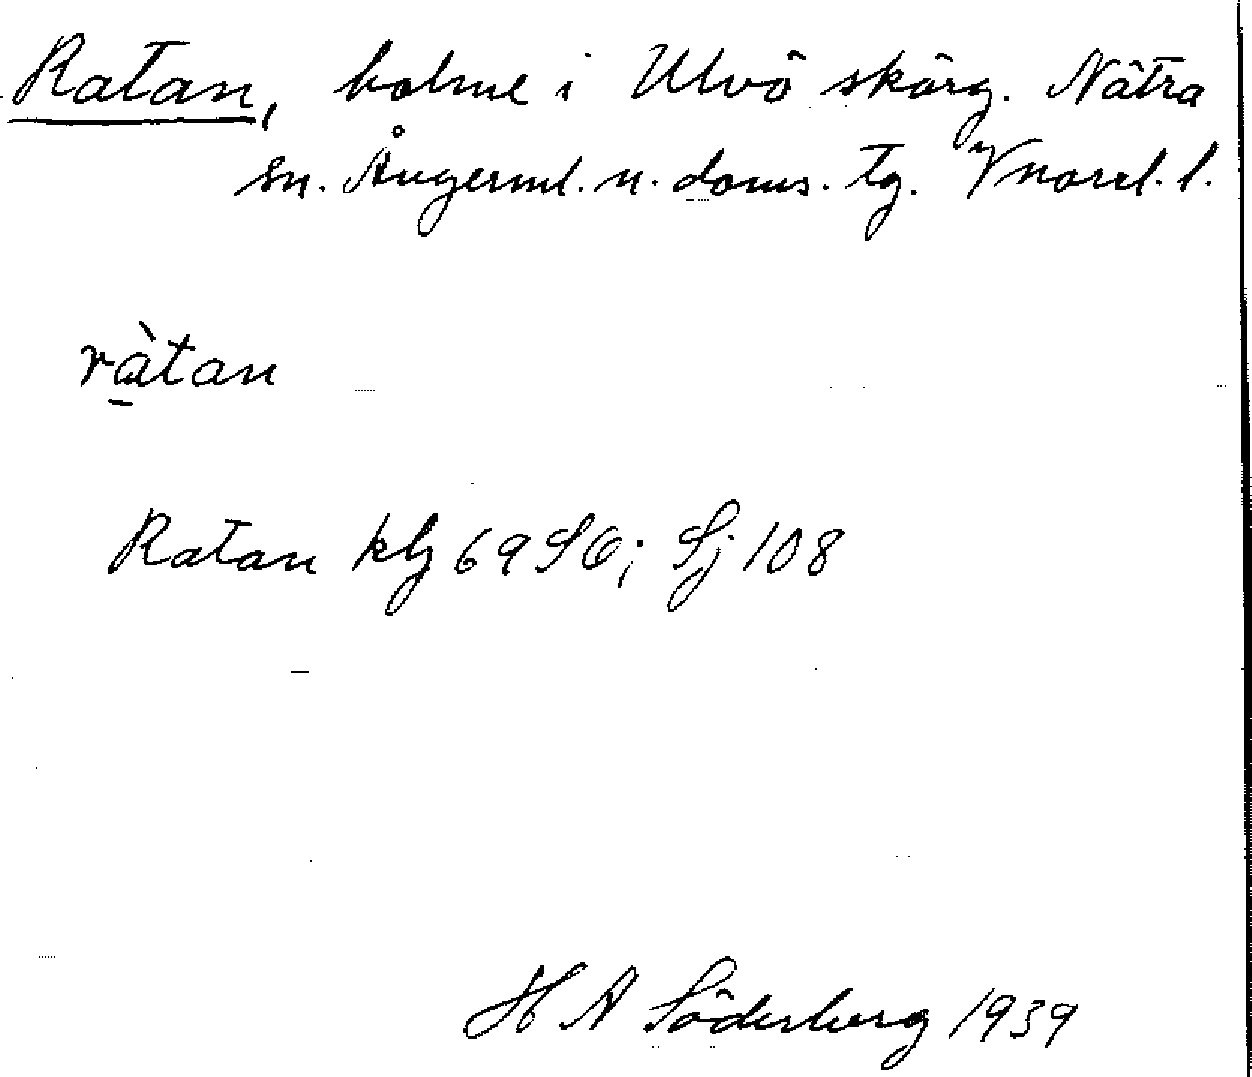 Ratan, holme i Ulvö skärg. Nätra
sn. Ångerml. n. doms. tg. Vnorrl. l.
ràtan
Ratan kbl 69 SO; Sj 108
H A Söderberg 1939